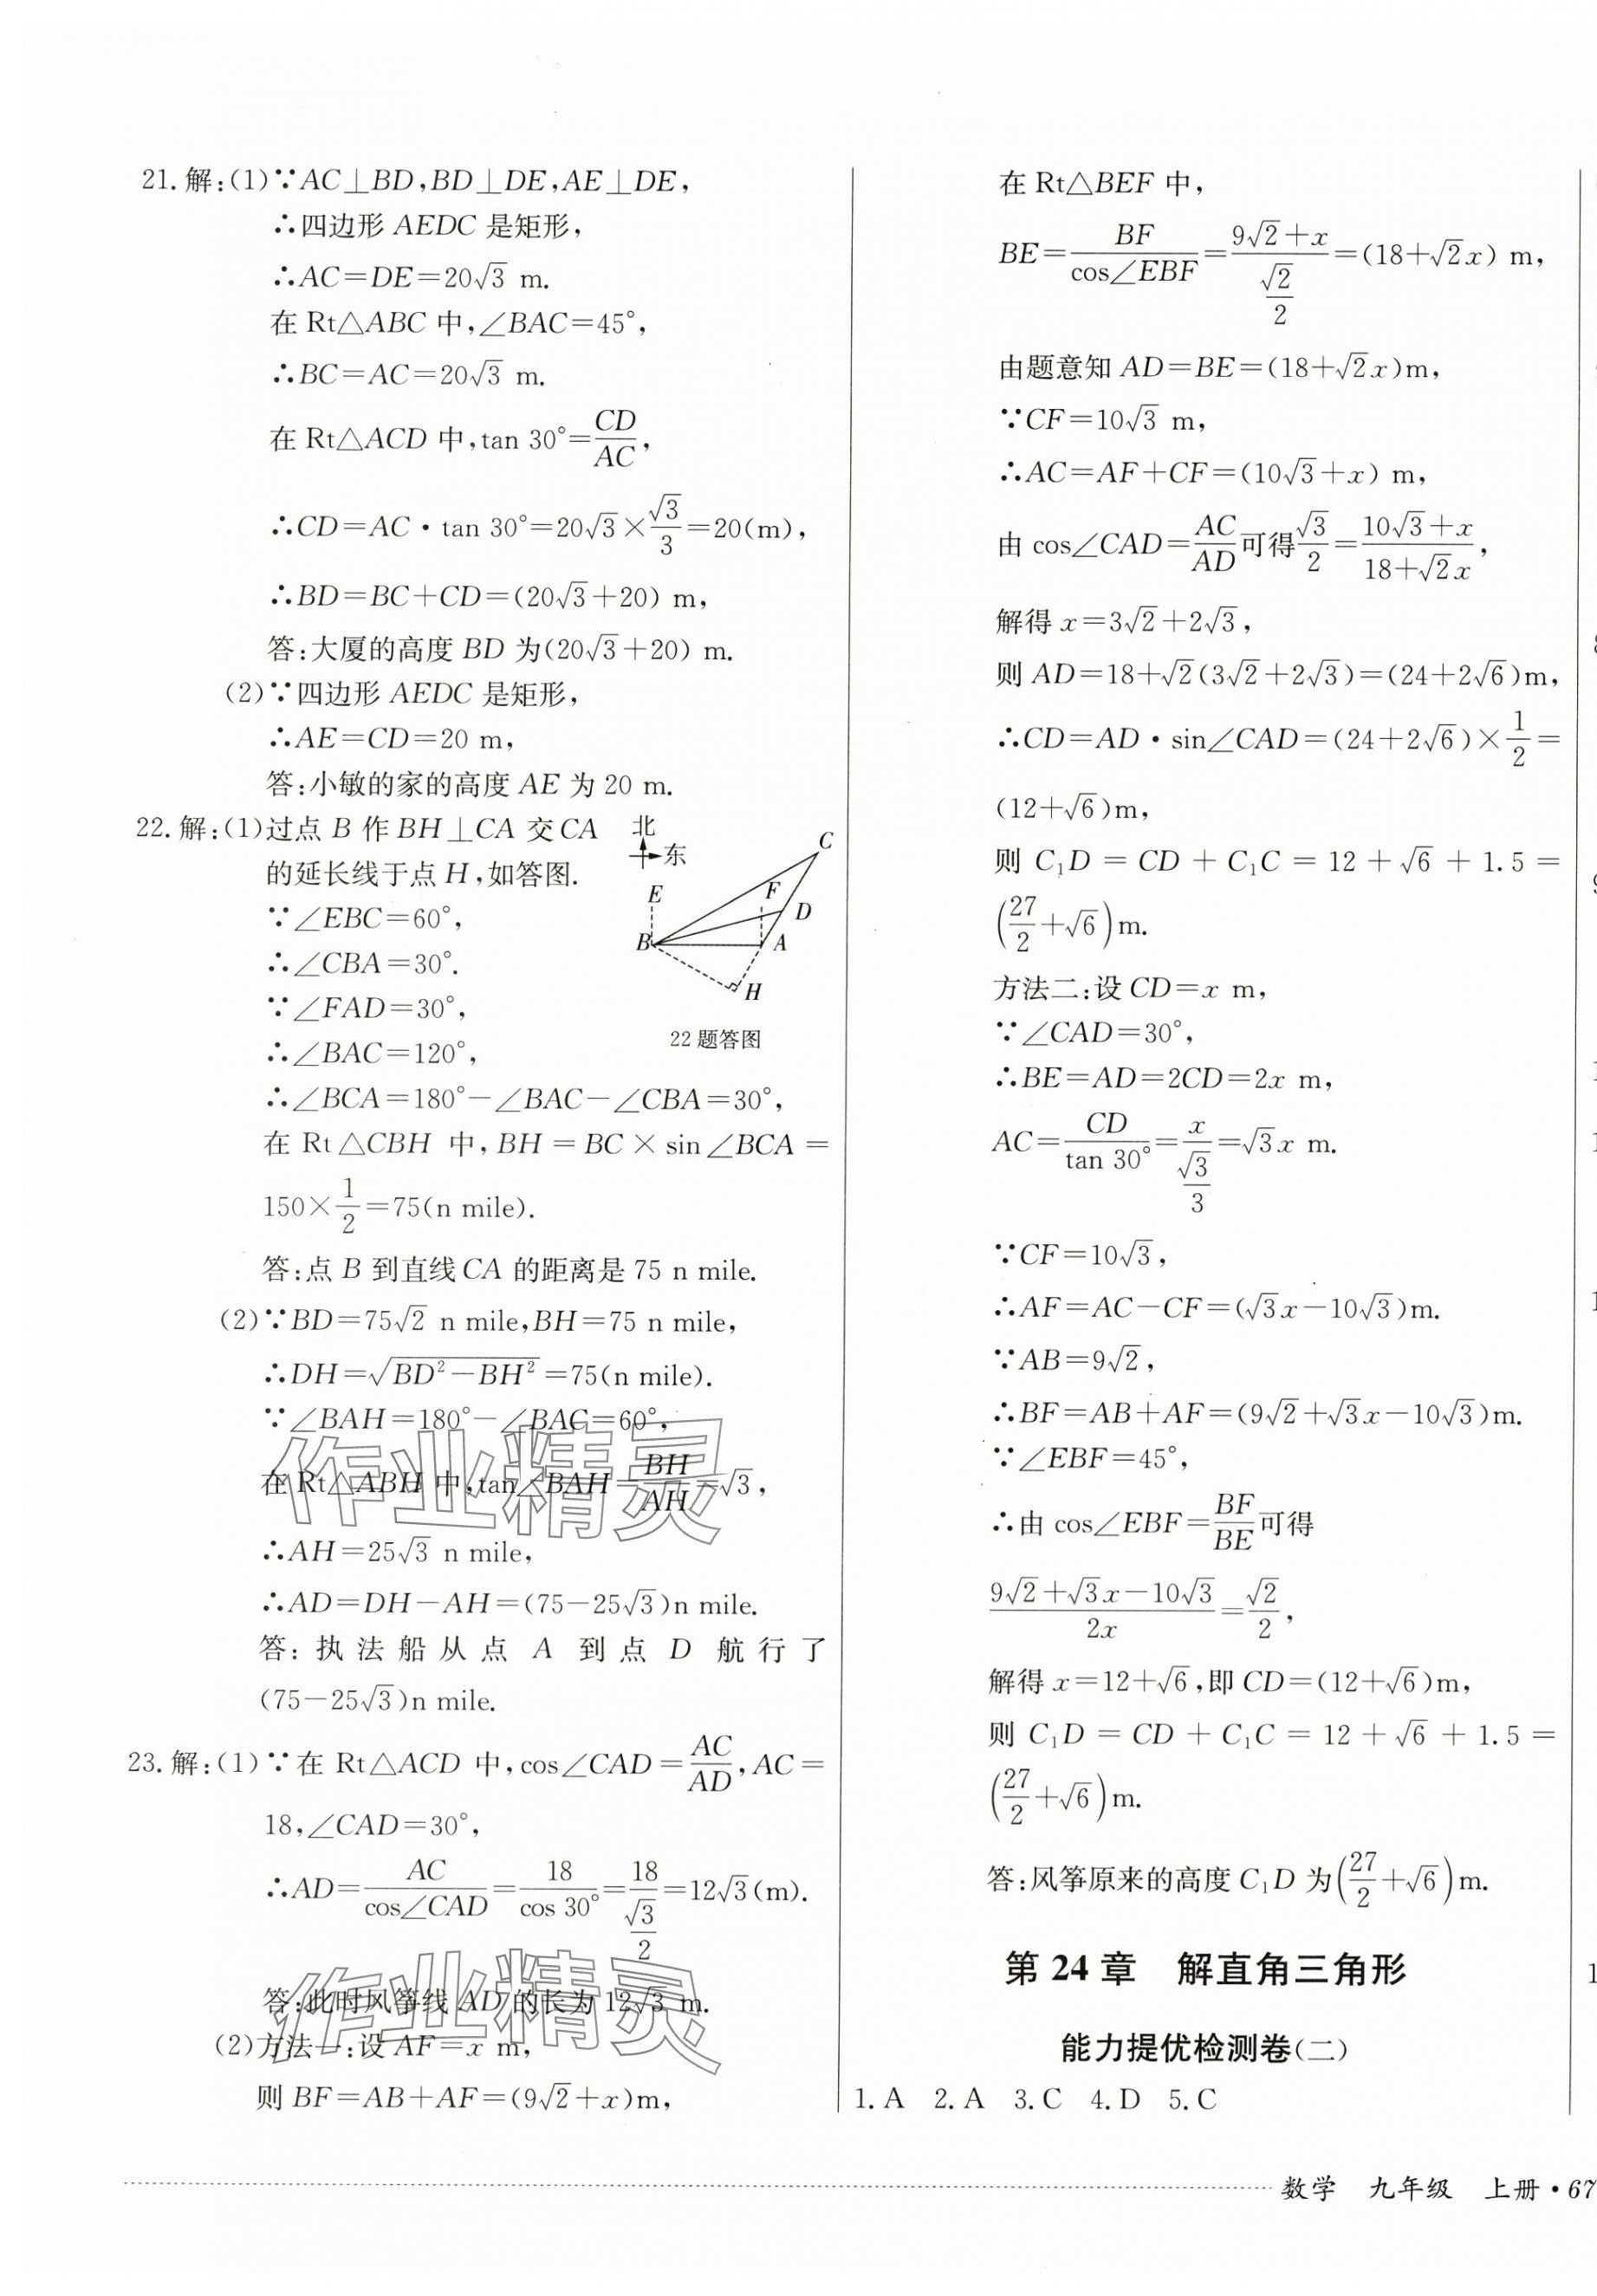 21.解:(1)∵AC⊥BD,BD⊥DE,AE⊥DE,
∴四边形 AEDC 是矩形,
∴AC=DE=20√3 m.
在 Rt△ABC 中,∠BAC=45°,
∴BC=AC=20√3 m.
在 Rt△ACD 中,tan 30°=CD/AC,
∴CD=AC·tan 30°=20√3×√3/3=20(m),
∴BD=BC+CD=(20√3+20) m,
答:大厦的高度 BD 为(20√3+20) m.
(2)∵四边形 AEDC 是矩形,
∴AE=CD=20 m,
答:小敏的家的高度 AE 为 20 m.
22.解:(1)过点 B 作 BH⊥CA 交 CA
的延长线于点 H,如答图.
∵∠EBC=60°,
∴∠CBA=30°.
∵∠FAD=30°,
∴∠BAC=120°,
北
东
C
E
F
D
B
A
H
22 题答图
∴∠BCA=180°-∠BAC-∠CBA=30°,
在 Rt△CBH 中,BH=BC×sin∠BCA=
150×1/2=75(n mile).
答:点 B 到直线 CA 的距离是 75 n mile.
(2)∵BD=75√2 n mile,BH=75 n mile,
∴DH=√(BD²-BH²)=75(n mile).
∵∠BAH=180°-∠BAC=60°,
在 Rt△ABH 中,tan∠BAH=BH/AH=√3,
∴AH=25√3 n mile,
∴AD=DH-AH=(75-25√3)n mile.
答:执法船从点 A 到点 D 航行了
(75-25√3)n mile.
23.解:(1)∵在 Rt△ACD 中,cos∠CAD=AC/AD,AC=
18,∠CAD=30°,
∴AD=AC/cos∠CAD=18/cos 30°=18/(√3/2)=12√3(m).
答:此时风筝线 AD 的长为 12√3 m.
(2)方法一:设 AF=x m,
则 BF=AB+AF=(9√2+x)m,
作业精灵
作业精灵
在 Rt△BEF 中,
BE=BF/cos∠EBF=(9√2+x)/(√2/2)=(18+√2x) m,
由题意知 AD=BE=(18+√2x)m,
∵CF=10√3 m,
∴AC=AF+CF=(10√3+x) m,
由 cos∠CAD=AC/AD可得√3/2=(10√3+x)/(18+√2x),
解得 x=3√2+2√3,
则 AD=18+√2(3√2+2√3)=(24+2√6)m,
∴CD=AD·sin∠CAD=(24+2√6)×1/2=
(12+√6)m,
则 C₁D=CD+C₁C=12+√6+1.5=
(27/2+√6)m.
方法二:设 CD=x m,
∵∠CAD=30°,
∴BE=AD=2CD=2x m,
AC=CD/tan 30°=x/(√3/3)=√3x m.
∵CF=10√3,
∴AF=AC-CF=(√3x-10√3)m.
∵AB=9√2,
∴BF=AB+AF=(9√2+√3x-10√3)m.
∵∠EBF=45°,
∴由 cos∠EBF=BF/BE可得
(9√2+√3x-10√3)/2x=√2/2,
解得 x=12+√6,即 CD=(12+√6)m,
则 C₁D=CD+C₁C=12+√6+1.5=
(27/2+√6)m.
答:风筝原来的高度 C₁D 为(27/2+√6)m.
第 24 章 解直角三角形
能力提优检测卷(二)
1.A 2.A 3.C 4.D 5.C
数学 九年级 上册·67